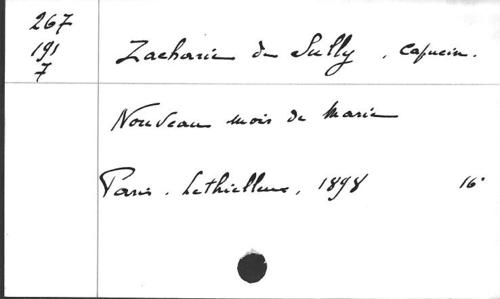 267
191
7
Zacharie de Sully, capucin.
Nouveau mois de Marie
Paris. Lethielleux, 1898 16°